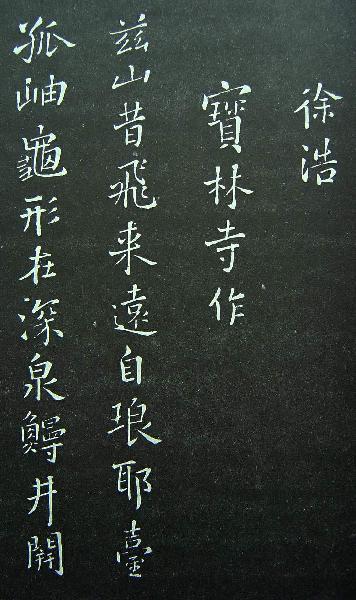 徐浩
寶林寺作
茲山昔飛来遠自琅耶臺
孤岫龜形在深泉鰻井開